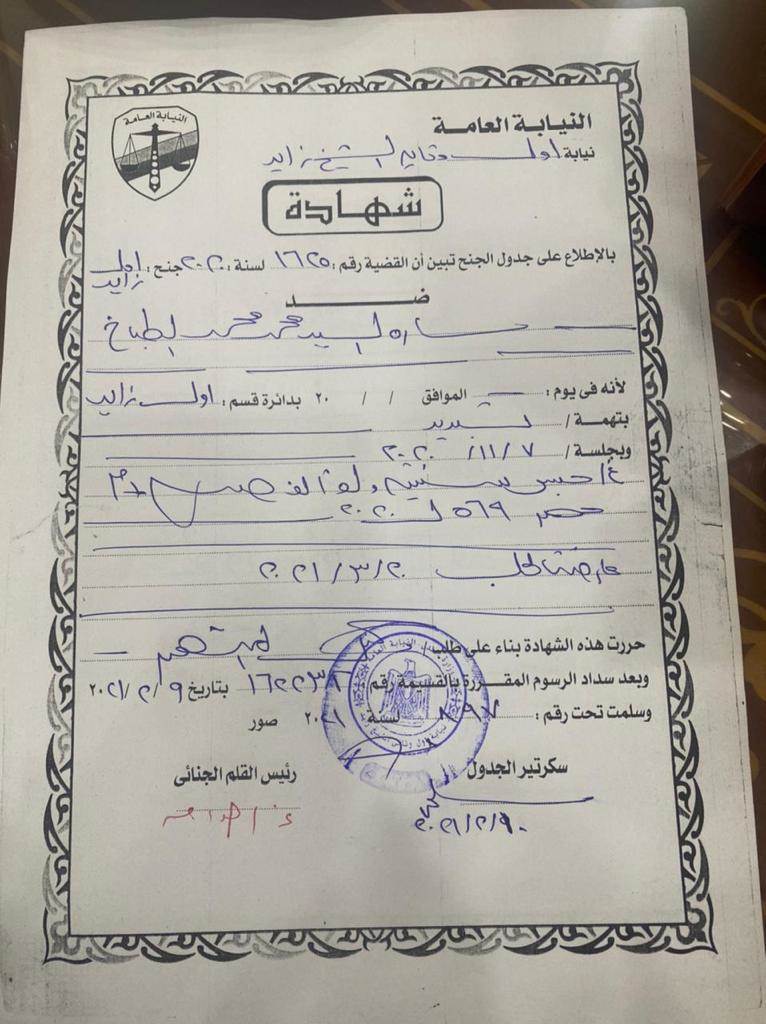 النيابة العامة
النيابة العامة
نيابة اول وثان الشيخ زايد
شهادة
بالإطلاع على جدول الجنح تبين أن القضية رقم : ١٦٢٥ لسنة : ٢٠٢٠ جنح : اول زايد
ضد
ساره السيد محمد محمد الطباخ
لأنه فى يوم : الموافق / / ٢٠ بدائرة قسم : اول زايد
بتهمة / تبديد
وبجلسة / ٧ / ١١ / ٢٠٢٠
غ/حبس سنتين و الف
حصر ٥٦٩ ل ٢٠٢٠
٢٠ / ٣ / ٢٠٢١
حررت هذه الشهادة بناء على طلب
وبعد سداد الرسوم المقررة بالقسيمة رقم : بتاريخ ٩ / ٢ / ٢٠٢١
وسلمت تحت رقم : ٨٩٧ لسنة ٢٠٢١ صور
سكرتير الجدول
رئيس القلم الجنائى